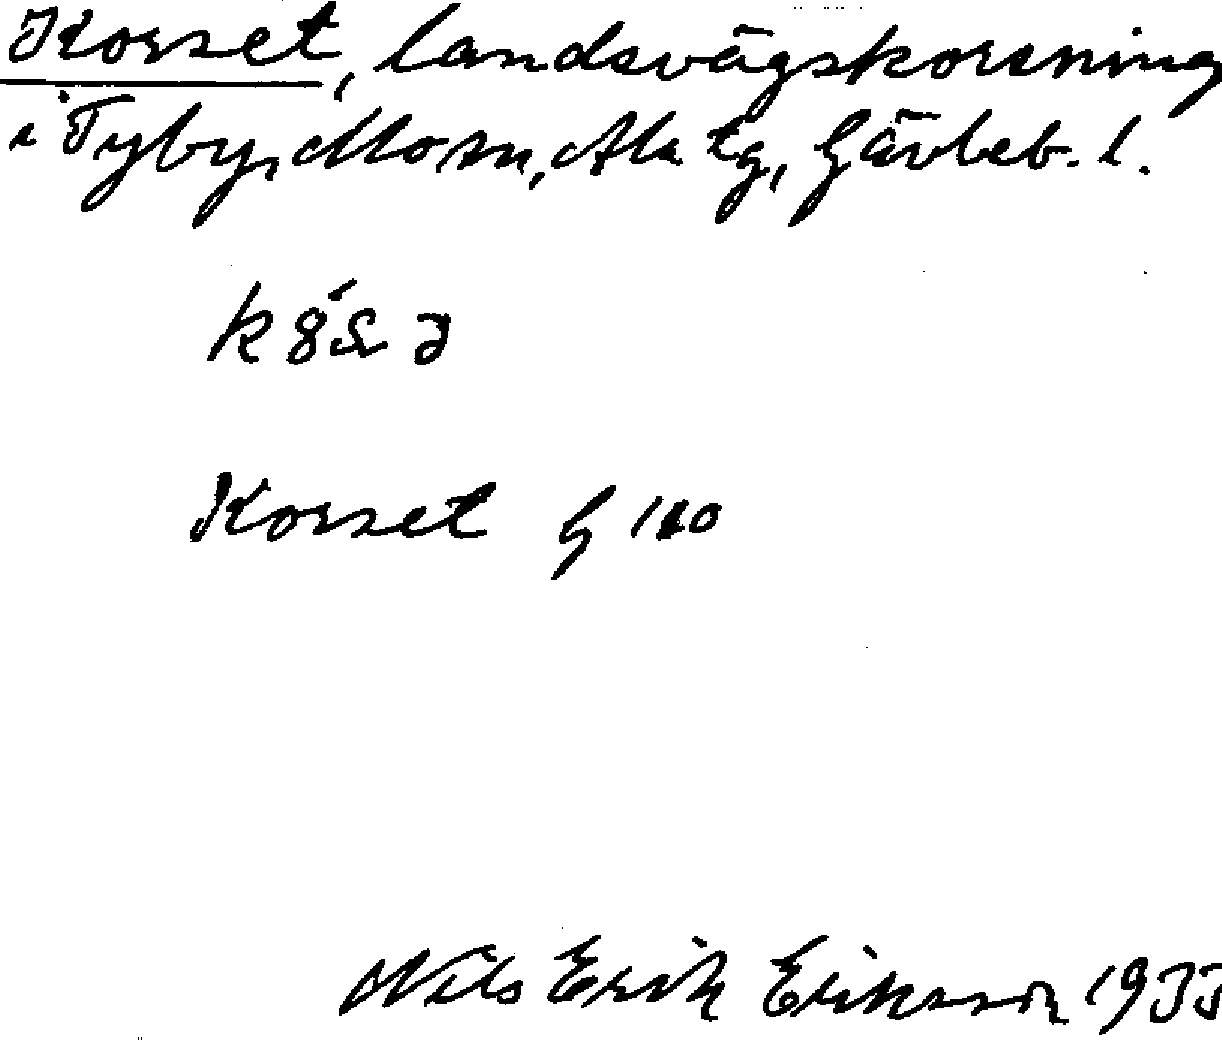 Korset, landsvägskorsning
i Tyby, Mo sn, Ala tg, Gävleb. l.
Korset G 110
Nils Erik Eriksson 1933